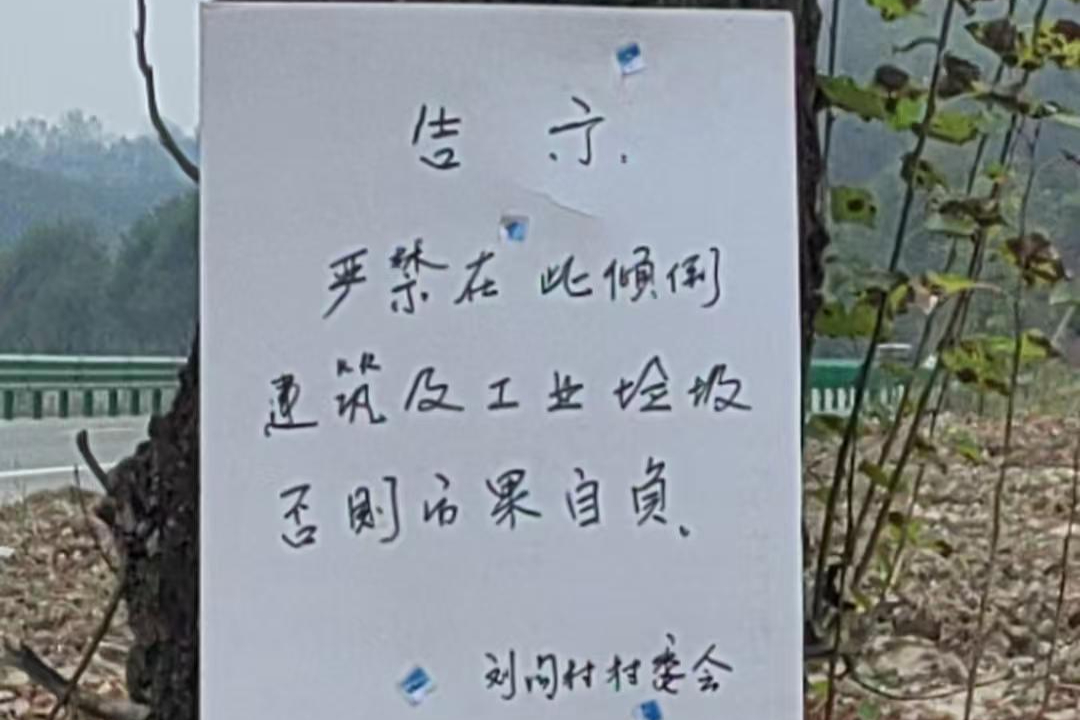 告示.
严禁在此倾倒
建筑及工业垃圾
否则后果自负、
刘问村村委会